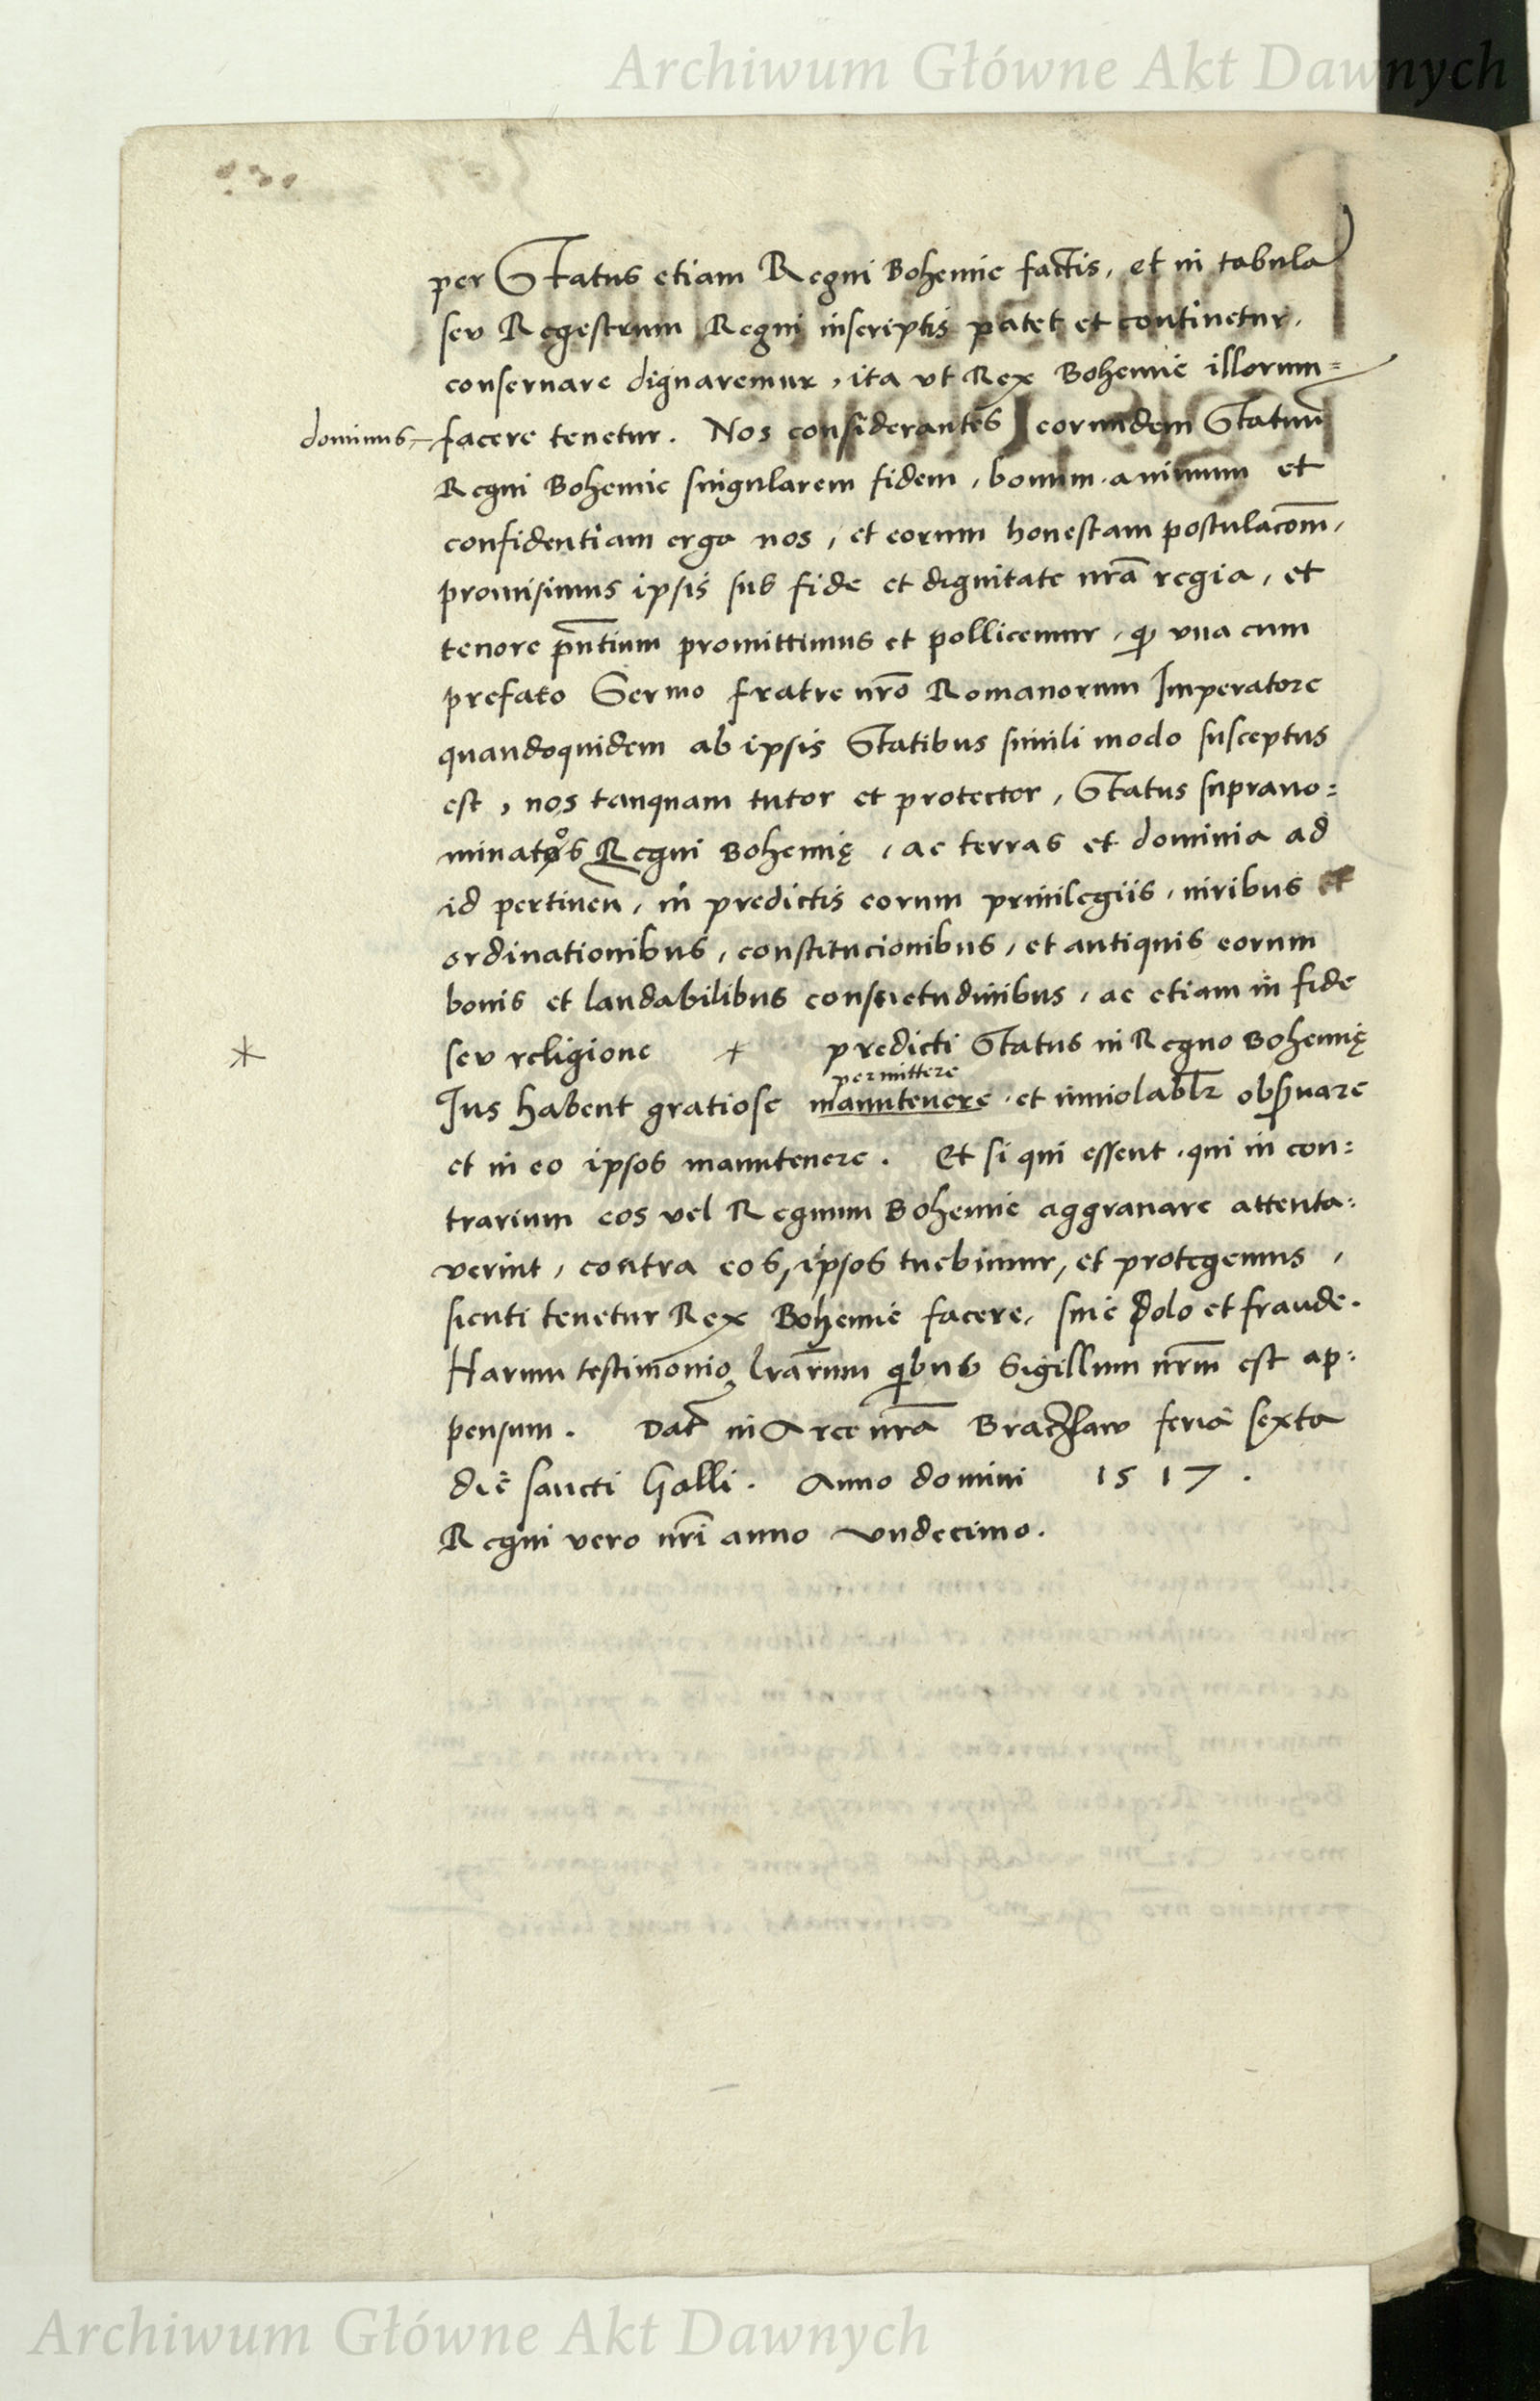 Archiwum Główne Akt Dawnych
per Status etiam Regni Bohemie factis, et in tabula
seu Regestrum Regni inscriptis patet et continetur,
conservare dignaremur, ita ut Rex Bohemie illorum=
dominus facere tenetur. Nos considerantes eorundem Statuum
Regni Bohemie singularem fidem, bonum animum et
confidentiam erga nos, et eorum honestam postulacom,
promisimus ipsis sub fide et dignitate nra regia, et
tenore pntium promittimus et pollicemur, q una cum
prefato Sermo fratre nro Romanorum Imperatore
quandoquidem ab ipsis Statibus simili modo susceptus
est, nos tanquam tutor et protector, Status suprano:
minatos Regni Bohemię, ac terras et dominia ad
id pertinen, in predictis eorum privilegiis, iuribus et
ordinationibus, constitucionibus, et antiquis eorum
bonis et laudabilibus consuetudinibus, ac etiam in fide
* seu religione * predicti Status in Regno Bohemię
permittere
Jus habent gratiose manutenere et inviolablr observare
et in eo ipsos manutenere. Et si qui essent, qui in con:
trarium eos vel Regnum Bohemie aggravare attenta:
verint, contra eos, ipsos tuebimur, et protegemus,
sicuti tenetur Rex Bohemie facere, sine dolo et fraude.
Harum testimonio lrarum qibus Sigillum nrm est ap:
pensum. Dat in Arce nra Braczlaw feria sexta
die sancti Galli. Anno domini 1517.
Regni vero nri anno undecimo.
Archiwum Główne Akt Dawnych